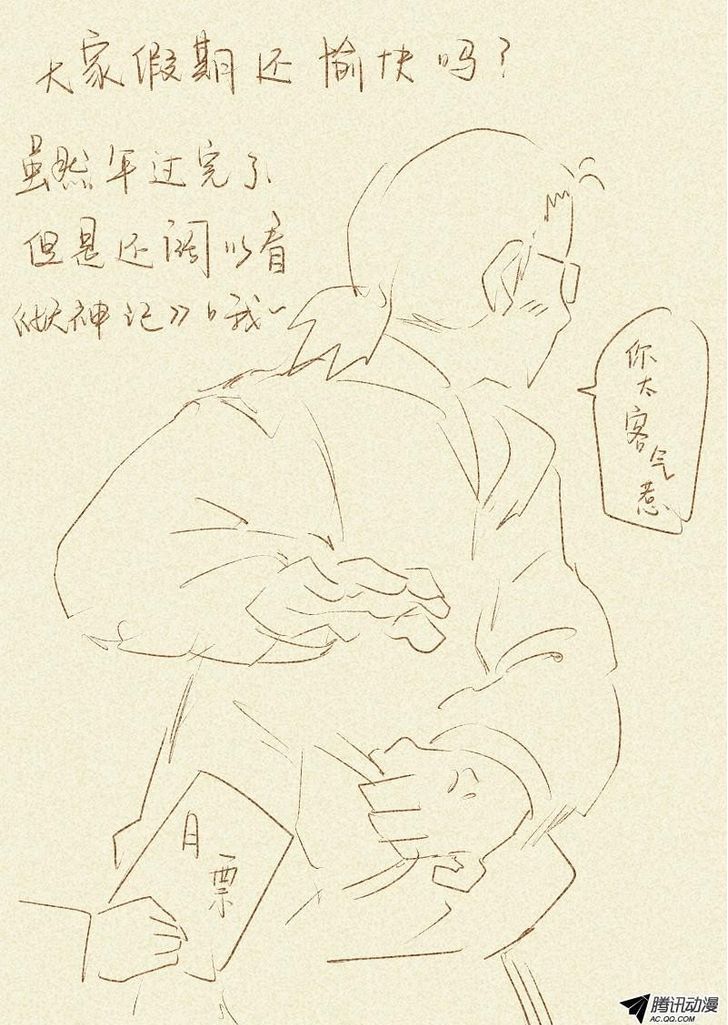 大家假期还愉快吗？
虽然年过完了
但是还阔以看
《妖神记》哦~
你太客气惹
月票
腾讯动漫
AC.QQ.COM